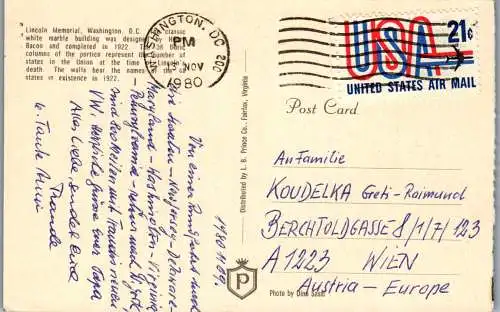 Lincoln Memorial, Washington, D.C. classic
white marble building was designed Henry
Bacon and completed in 1922. The 36 Doric
columns of the portico represent the number of
states in the Union at the time Lincoln's
death. The walls bear the names of the
states in existence in 1922.
WASHINGTON, DC 200
PM
13 NOV
1980
21¢
USA
UNITED STATES AIR MAIL
Post Card
Distributed by L. B. Prince Co., Fairfax, Virginia
P
Photo by Don
An Familie
KOUDELKA Gerti-Raimund
BERCHTOLDGASSE 8/1/7/123
A 1223 WIEN
Austria - Europe
1980 11 09.
Von einer Rundfahrt durch
- New Jersey - Delaware -
Maryland - Washington - Virginia
Pennsylvania -
und
VW. Herzliche Grüsse Euer Papa
Alles Liebe sendet Euch
Traude
u. Tante Anni